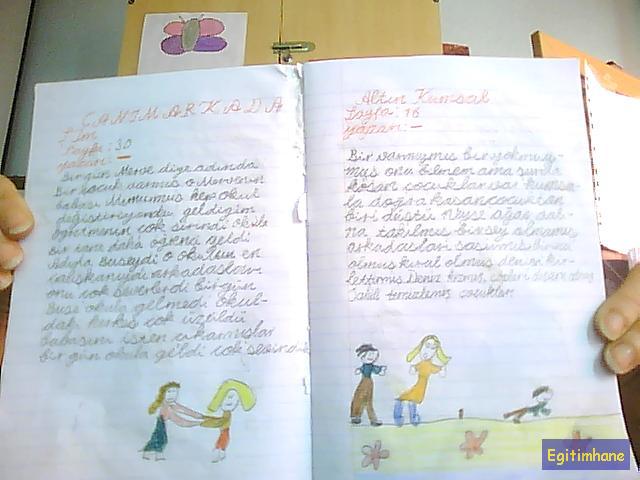 CANIM ARKADAŞ
Sayfa: 30
yazan: —
Bir gün Merve diye adında
Bir çocuk varmış o Mervenin
babası Memurmuş her okul
değiştiriyordu geldiğim
öğretmenin çok sirindi Okula
bir tane daha öğrenci geldi
Adıyla Buseydi o okulun en
çalışkanıydı arkadaşları
onu çok severlerdi bir gün
Buse okula gelmedi Okul-
daki herkes çok üzüldü
babasını işten çıkarmışlar
bir gün okula geldi çok
Altın Kumsal
Sayfa: 16
yazan: —
Bir varmış bir yokmuş
onu bilmem ama şunda
koşan çocuklar var kumsa-
la doğra koşan çocuktan
biri düştü Neyse ağaç dalı-
na takılmış birşey olmamış
arkadaşları
olmuş kırıl olmuş denizi kir-
letmiş Deniz
temizlemiş çocuklar
Egitimhane